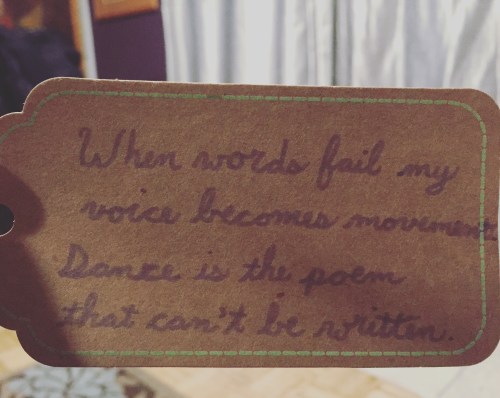 When words fail my
voice becomes movement.
Dance is the poem
that can't be written.